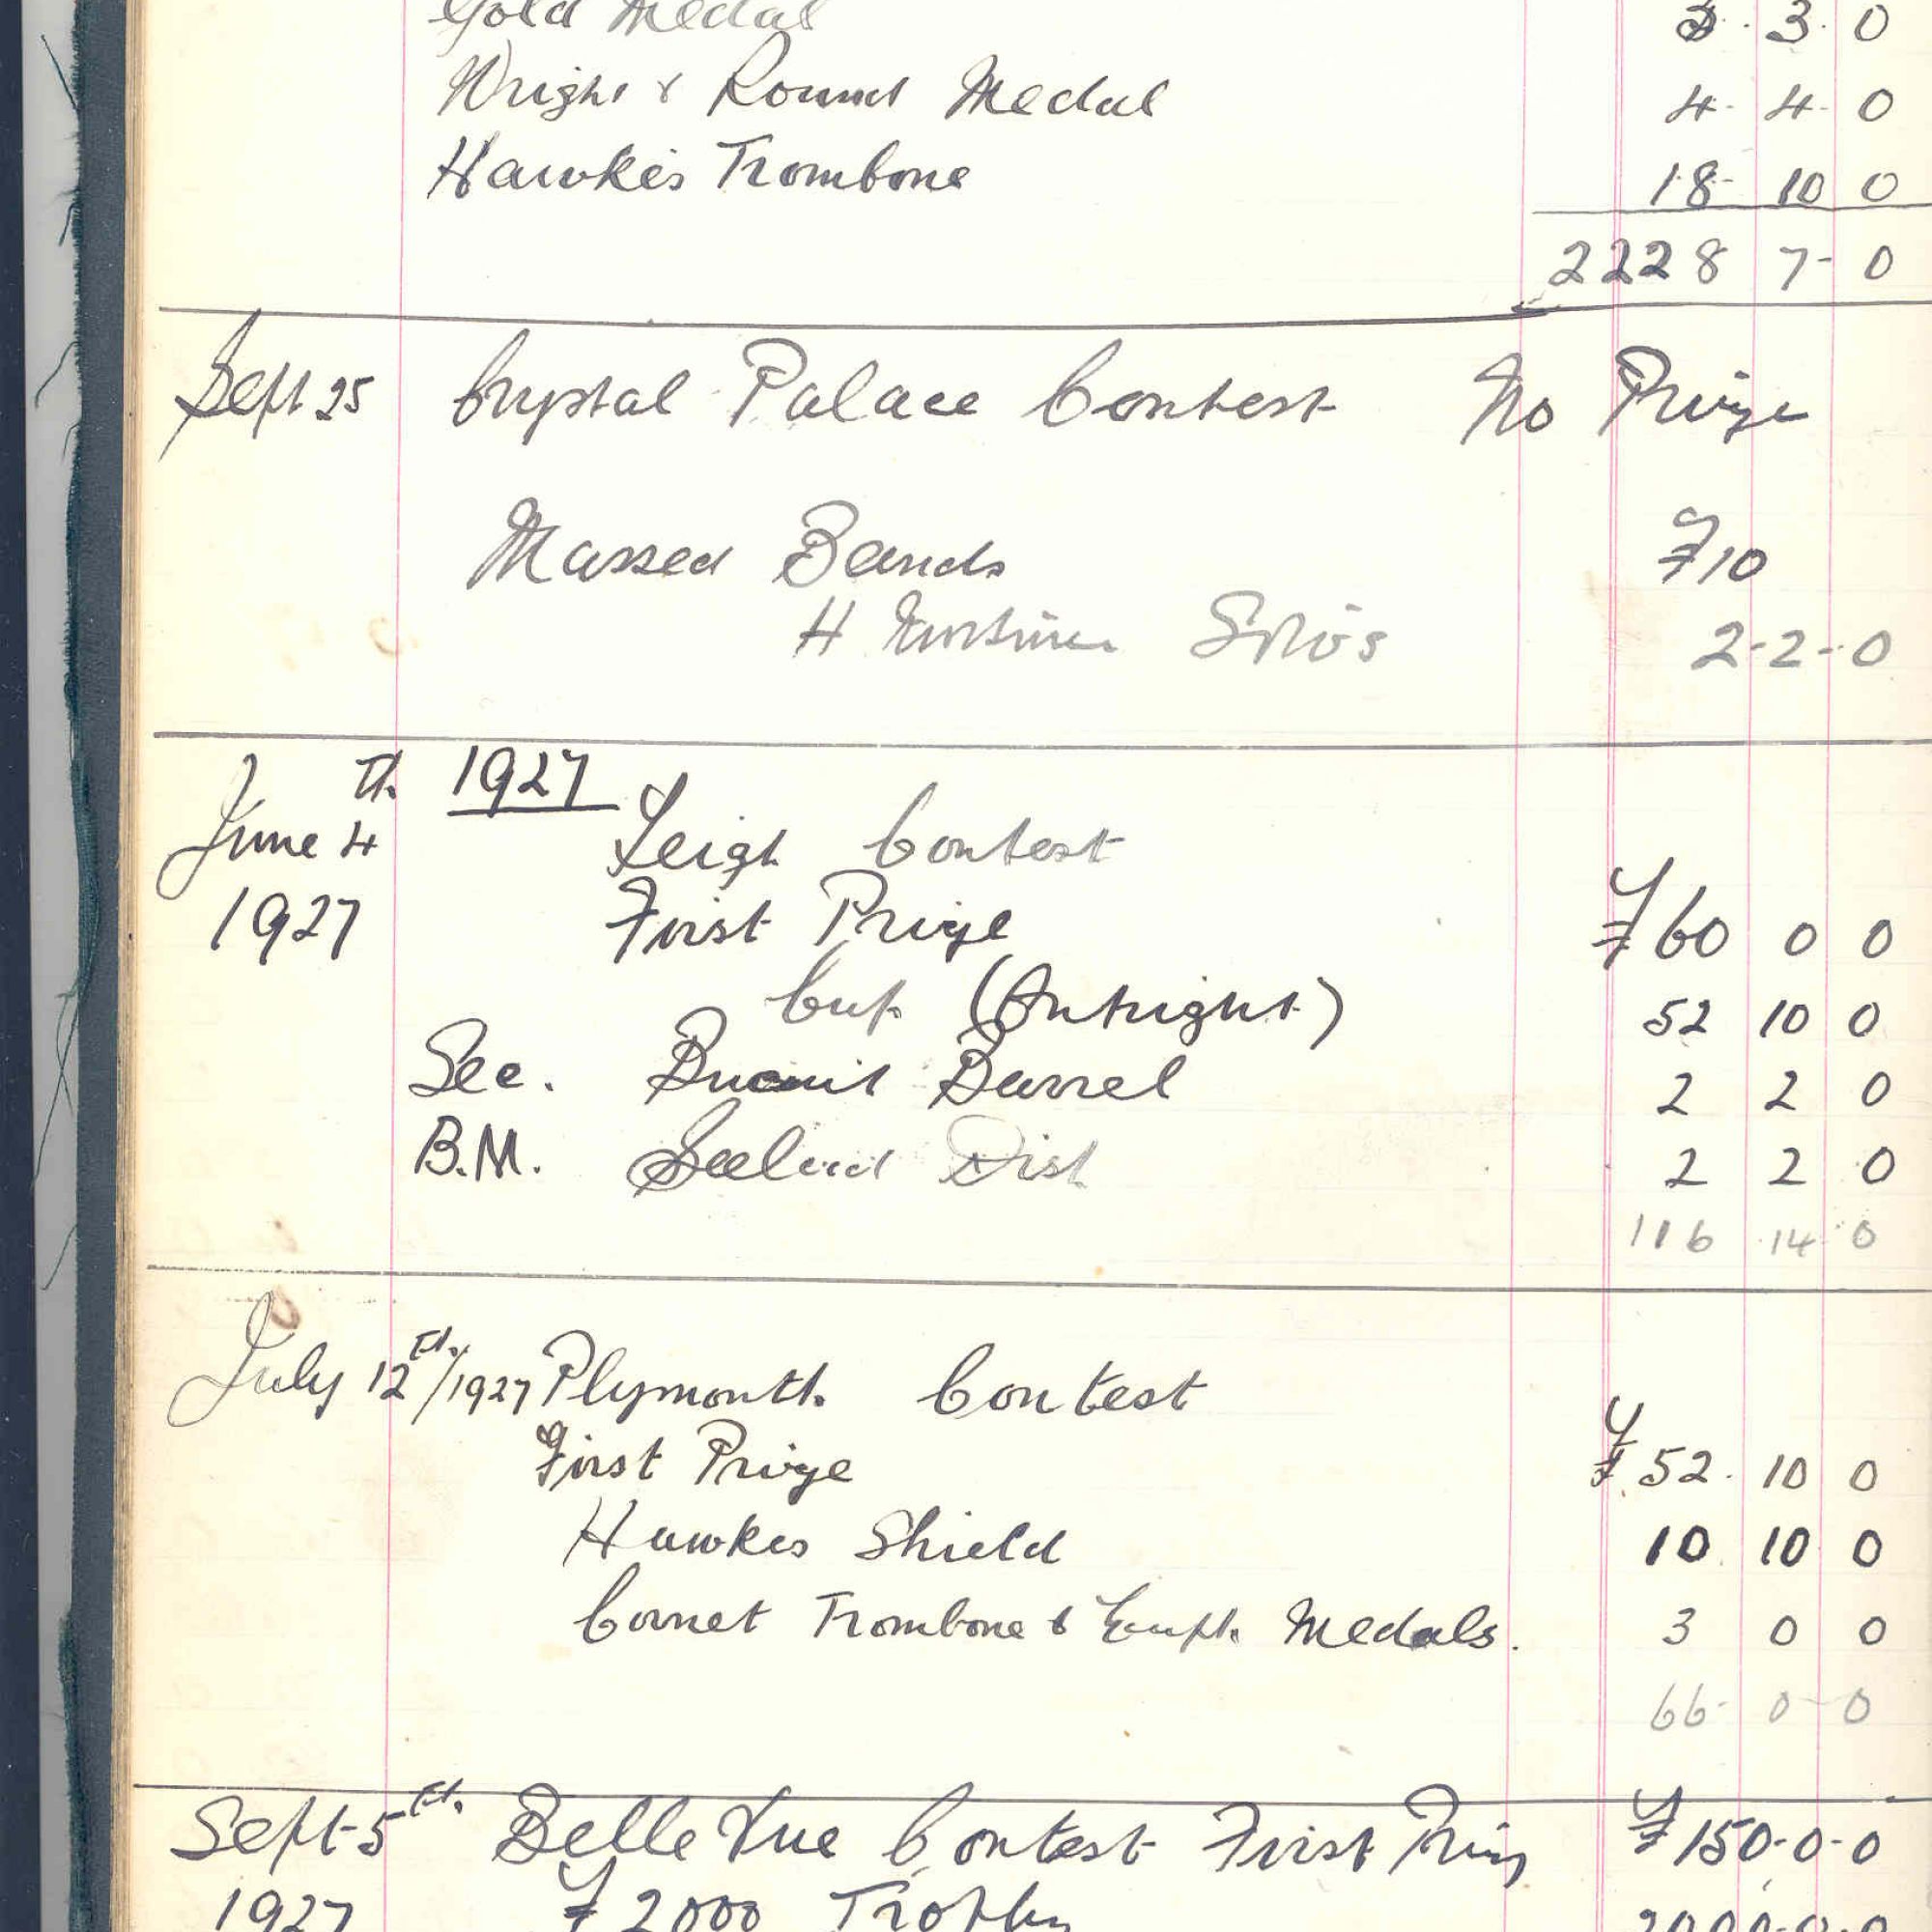 Gold Medal 3 . 3 . 0
Wright & Round Medal 4 - 4 - 0
Hawkes Trombone 18 - 10 0
2228 7 - 0
Sept 25 Crystal Palace Contest No Prize
Massed Bands £10
H Mortimer Solos 2 - 2 - 0
1927
June 4th Leigh Contest
1927 First Prize £60 0 0
Cup (Outright) 52 10 0
Sec. Biscuit Barrel 2 2 0
B.M. Dist 2 2 0
116 14 0
July 12th/1927 Plymouth Contest
First Prize £52 . 10 0
Hawkes Shield 10 10 0
Cornet Trombone & Euph. Medals. 3 0 0
66 - 0 - 0
Sept 5th Belle Vue Contest First Prize £150 - 0 - 0
1927 £2000 Trophy 2000 - 0 - 0